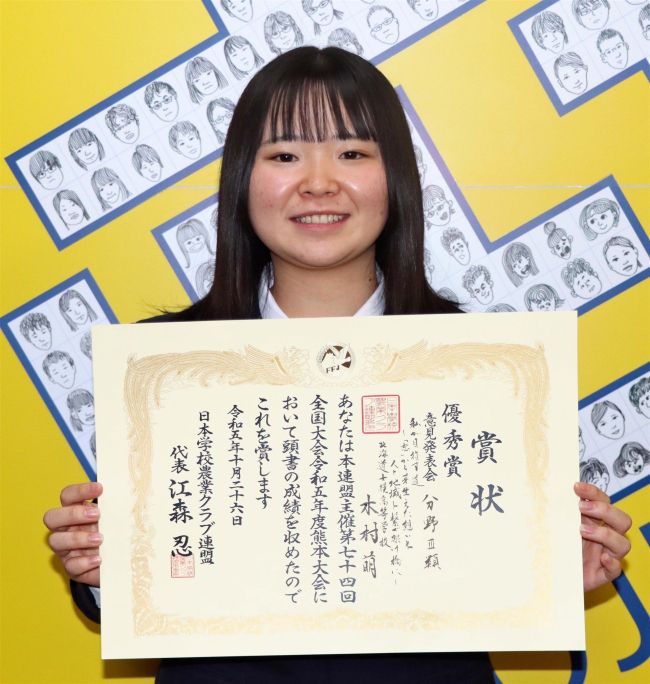 FFJ
賞状
優秀賞
意見発表会 分野Ⅲ類
北海道
高等学校
木村萌
あなたは本連盟主催第七十四回
全国大会令和五年度熊本大会に
おいて頭書の成績を収めたので
これを賞します
令和五年十月二十六日
日本学校農業クラブ連盟
代表 江森 忍